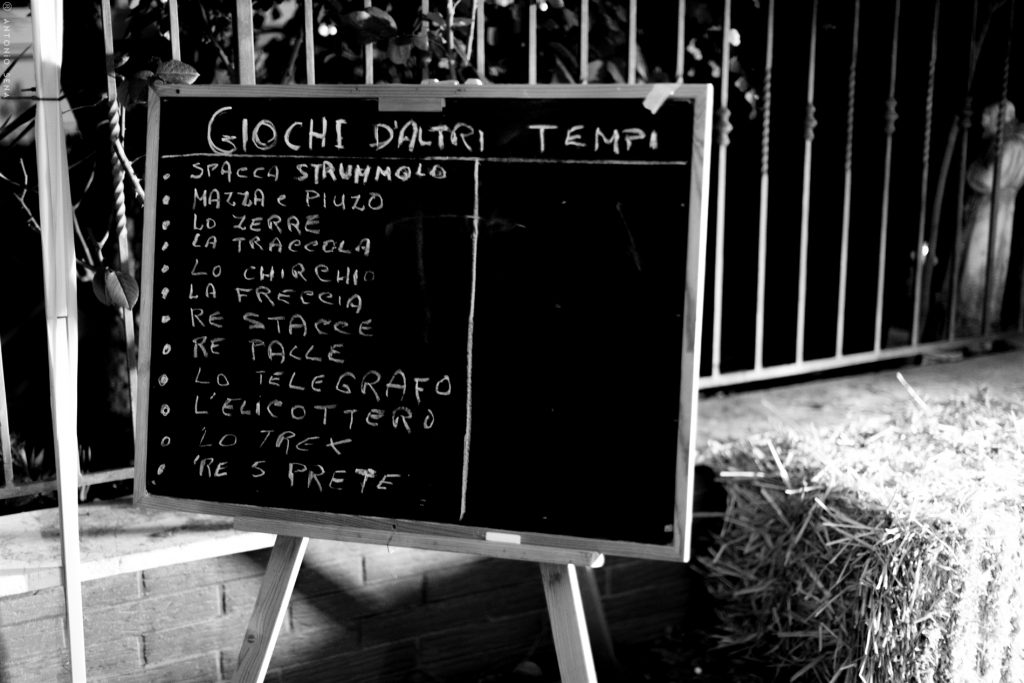 © ANTONIO SENA
GIOCHI D'ALTRI TEMPI
• SPACCA STRUMMOLO
• MAZZA e PIUZO
• LO ZERRE
• LA TRACCOLA
• LO CHIRCHIO
• LA FRECCIA
• RE STACCE
• RE PALLE
• LO TELEGRAFO
• L'ELICOTTERO
• LO TREX
• 'RE S PRETE